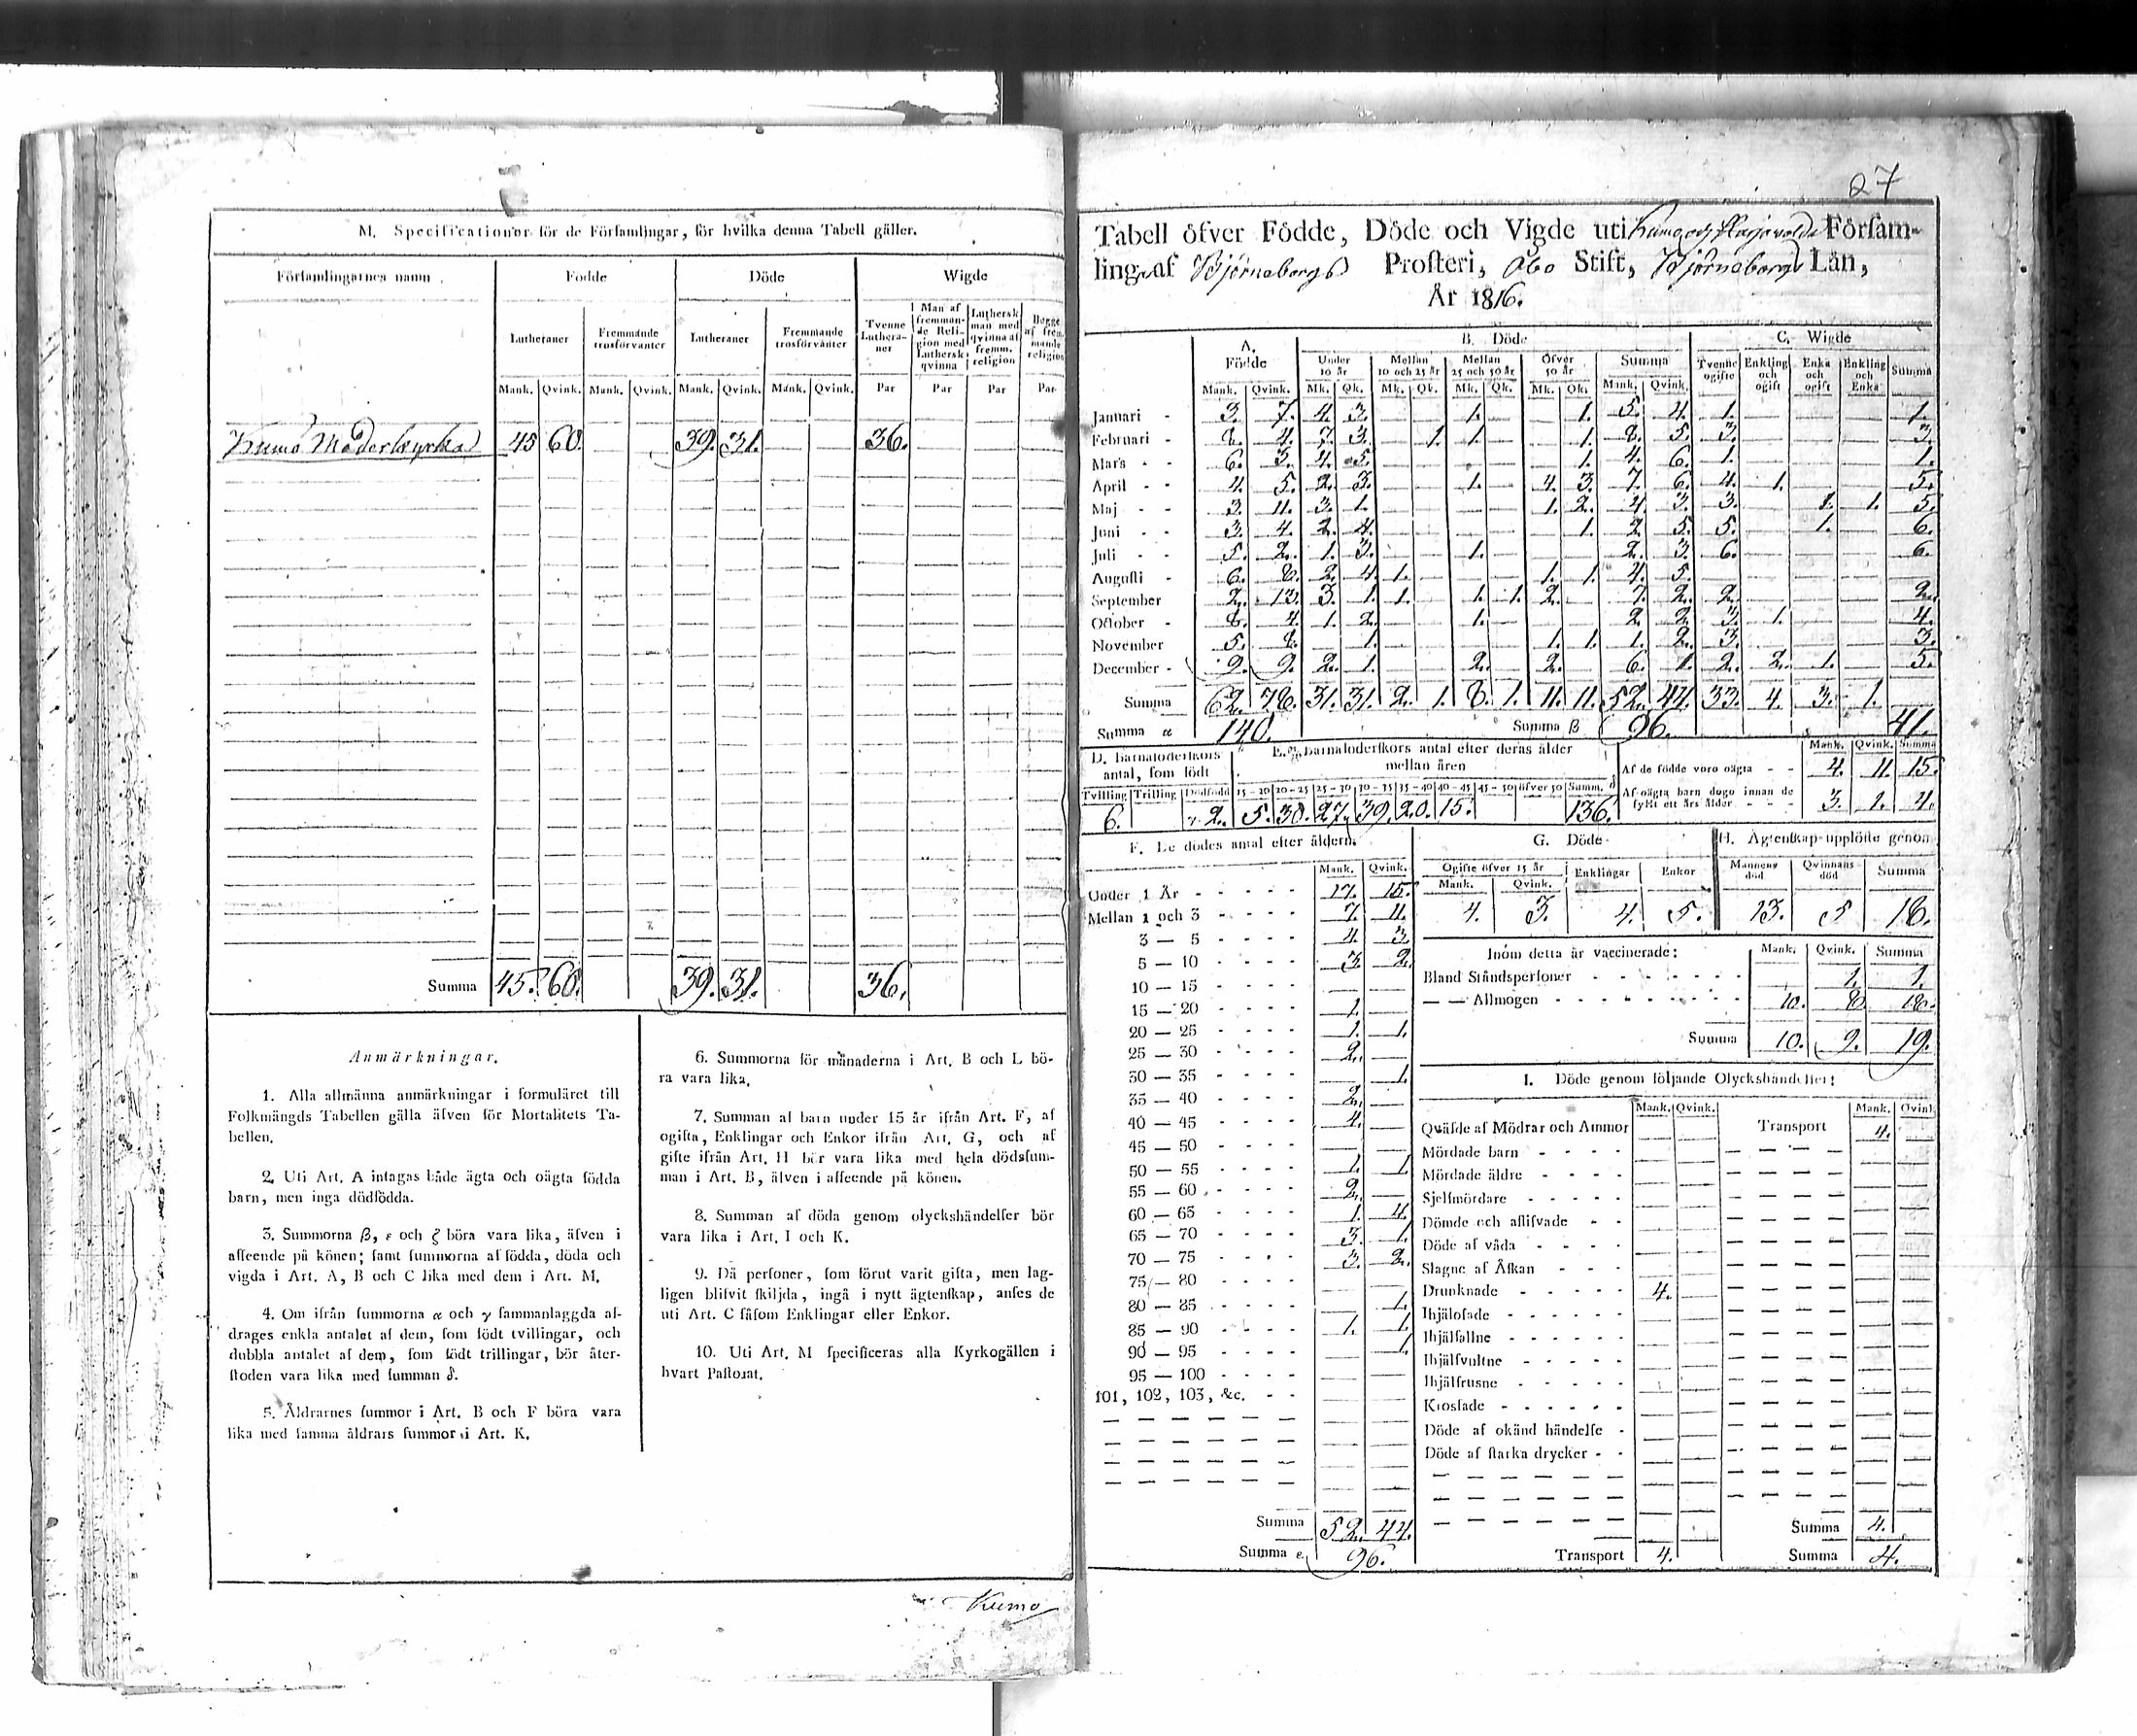 M. Specificationer för de Församlingar, för hvilka denna Tabell gäller.
Församlingarnes namn Födde Döde Wigde
Lutheraner Fremmande trosförvanter Lutheraner Fremmande trosförvanter Tvenne Lutheraner Man af fremmande Religion med Luthersk qvinna Luthersk man med qvinna af fremm. religion Bägge af fremmande religion
Mank. Qvink. Mank. Qvink. Mank. Qvink. Mank. Qvink. Par Par Par Par
Kumo Moderkyrka 45 60. 39. 31. 36.
Summa 45. 60. 39. 31. 36.
Anmärkningar.
1. Alla allmänna anmärkningar i formuläret till
Folkmängds Tabellen gälla äfven för Mortalitets Ta-
bellen.
2. Uti Art. A intagas både ägta och oägta födda
barn, men inga dödfödda.
3. Summorna β, ε och ζ böra vara lika, äfven i
afseende på könen; samt summorna af födda, döda och
vigda i Art. A, B och C lika med dem i Art. M.
4. Om ifrån summorna α och γ sammanlaggda af-
drages enkla antalet af dem, som födt tvillingar, och
dubbla antalet af dem, som födt trillingar, bör åter-
stoden vara lika med summan δ.
5. Åldrarnes summor i Art. B och F böra vara
lika med samma åldrars summor i Art. K.
6. Summorna för månaderna i Art. B och L bö-
ra vara lika.
7. Summan af barn under 15 år ifrån Art. F, af
ogifta, Enklingar och Enkor ifrån Art. G, och af
gifte ifrån Art. H bör vara lika med hela dödssum-
man i Art. B, älven i afseende på könen.
8. Summan af döda genom olyckshändelser bör
vara lika i Art. I och K.
9. Då personer, som förut varit gifta, men lag-
ligen blifvit skiljda, ingå i nytt ägtenskap, anses de
uti Art. C såsom Enklingar eller Enkor.
10. Uti Art. M specificeras alla Kyrkogällen i
hvart Pastorat.
Kumo
27
Tabell öfver Födde, Döde och Vigde uti Kumo och Församling
lingar af Björneborgs Prosteri, Åbo Stift, Björneborgs Län,
År 1816.
A. Födde B. Döde C. Wigde
Under 10 år Mellan 10 och 25 år Mellan 25 och 50 år Öfver 50 år Summa Tvenne ogifte Enkling och ogift Enka och ogift Enkling och Enka Summa
Mank. Qvink. Mk. Qk. Mk. Qk. Mk. Qk. Mk. Qk. Mank. Qvink.
Januari 3. 7. 4. 3. 1. 1. 5. 4. 1. 1.
Februari 8. 4. 7. 3. 1. 1. 1. 8. 5. 3. 3.
Mars 6. 3. 4. 5. 1. 4. 6. 1. 1.
April 4. 5. 2. 3. 1. 4. 3. 7. 6. 4. 1. 5.
Maj 3. 11. 3. 1. 1. 2. 4. 3. 3. 1. 1. 5.
Juni 3. 4. 2. 4. 1. 2. 5. 5. 1. 6.
Juli 5. 2. 1. 3. 1. 2. 3. 6. 6.
Augusti 6. 8. 2. 4. 1. 1. 1. 4. 5.
September 2. 13. 3. 1. 1. 1. 1. 2. 7. 2. 2. 2.
October 8. 4. 1. 2. 1. 2 2. 3. 1. 4.
November 5. 8. 1. 1. 1. 1. 2. 3. 3.
December 9. 9. 2. 1. 2. 2. 6. 1. 2. 2. 1. 5.
Summa 62. 78. 31. 31. 2. 1. 8. 1. 11. 11. 52. 44. 33. 4. 3. 1.
Summa α 140. Summa β 96. 41.
D. Barnaföderskors antal, som födt
Tvilling Trilling Dödfödd
6. γ 2.
E. Barnaföderskors antal efter deras ålder mellan åren
15-20 20-25 25-30 30-35 35-40 40-45 45-50 öfver 50 Summ. δ
5. 30. 27. 39. 20. 15. 136.
Mank. Qvink. Summa
Af de födde voro oägta 4. 11. 15.
Af oägta barn dogo innan de fyllt ett års ålder 3. 1. 4.
F. De dödes antal efter åldern.
Mank. Qvink.
Under 1 År 17. 15.
Mellan 1 och 3 7. 11.
3 — 5 4. 3
5 — 10 3. 2.
10 — 15
15 — 20 1.
20 — 25 1. 1.
25 — 30 2.
30 — 35 1.
35 — 40 2.
40 — 45 4.
45 — 50
50 — 55 1. 1.
55 — 60 2.
60 — 65 1. 4.
65 — 70 3. 1.
70 — 75 3. 2.
75 — 80
80 — 85 1.
85 — 90 1. 1.
90 — 95 1.
95 — 100
101, 102, 103, &c.
Summa 52. 44.
Summa ε 96.
G. Döde
Ogifte öfver 15 år Enklingar Enkor
Mank. Qvink.
4. 3. 4. 5.
H. Ägtenskap upplöste genom
Mannens död Qvinnans död Summa
13. 5 18.
Inom detta år vaccinerade: Mank. Qvink. Summa
Bland Ståndspersoner 1. 1.
— — Allmogen 10. 8 18.
Summa 10. 9. 19.
I. Döde genom följande Olyckshändelser:
Mank. Qvink. Mank. Qvink.
Qväfde af Mödrar och Ammor Transport 4.
Mördade barn
Mördade äldre
Sjelfmördare
Dömde och aflifvade
Döde af våda
Slagne af Åskan
Drunknade 4.
Ihjälosade
Ihjälfallne
Ihjälsvultne
Ihjälfrusne
Krossade
Döde af okänd händelse
Döde af starka drycker
Summa 4.
Transport 4. Summa 4.